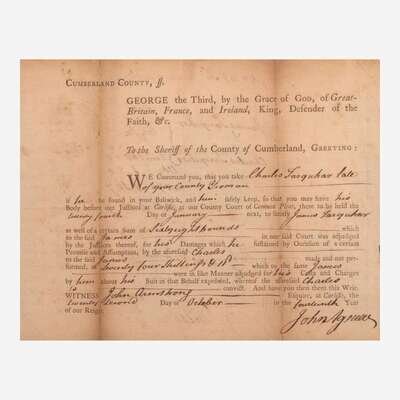 CUMBERLAND COUNTY, ſſ.
GEORGE the Third, by the Grace of GOD, of Great-
Britain, France, and Ireland, King, Defender of the
Faith, &c.
To the Sheriff of the County of Cumberland, GREETING:
WE Command you, that you take Charles Farquhar late
of your County Yeoman
if he be found in your Bailiwick, and him ſafely keep, ſo that you may have his
Body before our Juſtices at Carliſle, at our County Court of Common Pleas, there to be held the
twenty fourth Day of January next, to ſatisfy James Farquhar
as well of a certain Sum of Sixty eight Pounds which
to the ſaid James in our ſaid Court was adjudged
by the Juſtices thereof, for his Damages which he ſuſtained by Occaſion of a certain
Promiſe and Aſſumption, by the aforeſaid Charles
to the ſaid James made and not per-
formed, as Twenty four Shillings & which to the ſame James
were in like Manner adjudged for his Coſts and Charges
by him about his Suit in that Behalf expended, whereof the aforeſaid Charles
is convict. And have you then there this Writ.
WITNESS John Armstrong Eſquire, at Carliſle, the
twenty second Day of October in the fourteenth Year
of our Reign.
John Agnew